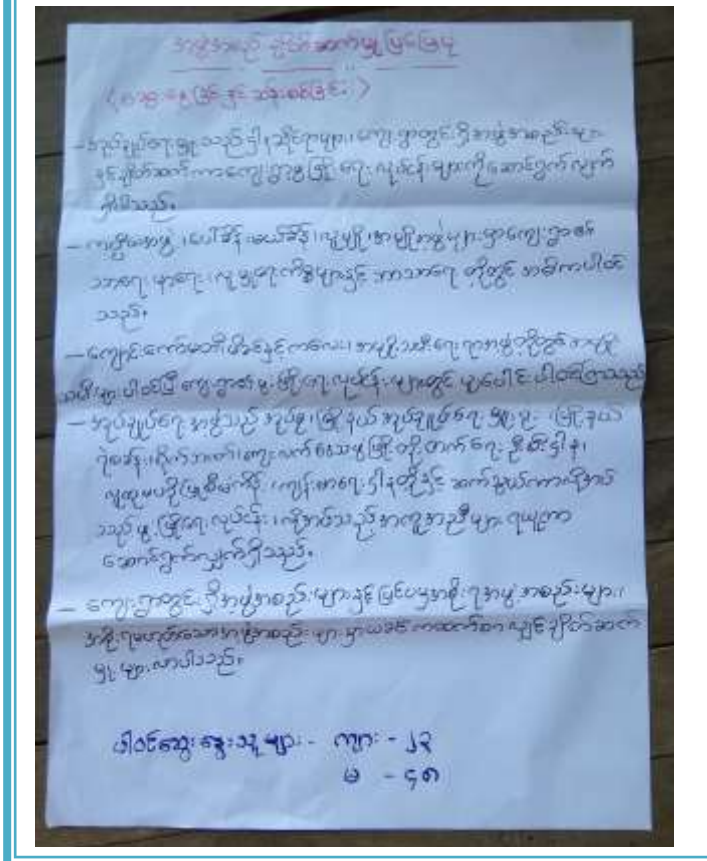 အဖွဲ့အစည်း ချိတ်ဆက်မှု ပြမြေပုံ
(ဆွေးနွေးခြင်းနှင့် ဆန်းစစ်ခြင်း)
– အုပ်ချုပ်ရေးမှူးသည် ဌါနဆိုင်ရာများ၊ ကျေးရွာတွင်းရှိ အဖွဲ့အစည်းများ
နှင့်ချိတ်ဆက်ကာ ကျေးရွာဖွံ့ဖြိုးရေးလုပ်ငန်းများကိုဆောင်ရွက်လျက်
ရှိပါသည်။
– ကော်မတီအဖွဲ့၊ ၊လူမှု အဖွဲ့များမှာကျေးရွာ၏
သာရေး၊ နာရေး၊ လူမှုရေးကိစ္စများနှင့် ဘာသာရေး တို့တွင် အဓိကပါဝင်
သည်။
– ကျောင်းကော်မတီ၊ မိခင်နှင့်ကလေး၊ အမျိုးသမီးရေးရာအဖွဲ့တို့တွင် အမျိုး
သမီးများပါဝင်ပြီး ကျေးရွာဖွံ့ဖြိုးရေးလုပ်ငန်းများတွင် ပူးပေါင်းပါဝင်ကြသည်
– အုပ်ချုပ်ရေးအဖွဲ့သည် အုပ်စု၊ မြို့နယ်အုပ်ချုပ်ရေးမှူး၊ မြို့နယ်
ရဲစခန်း၊ ကျေးလက်ဒေသဖွံ့ဖြိုးတိုးတက်ရေးဦးစီးဌါန၊
လူထုဗဟိုပြုစီမံကိန်း၊ ကျန်းမာရေးဌါနတို့နှင့် ဆက်သွယ်ကာလိုအပ်
သည့်ဖွံ့ဖြိုးရေးလုပ်ငန်း၊ လိုအပ်သည့်အကူအညီများ ရယူကာ
ဆောင်ရွက်လျှက်ရှိသည်။
– ကျေးရွာတွင်းရှိအဖွဲ့အစည်းများနှင့်ပြင်ပမှအစိုးရအဖွဲ့အစည်းများ၊
အစိုးရမဟုတ်သောအဖွဲ့အစည်းများမှာယခင်ကထက်စာလျှင်ချိတ်ဆက်
မှုများလာပါသည်။
ပါဝင်ဆွေးနွေးသူများ - ကျား - ၂၃
မ - ၄၈